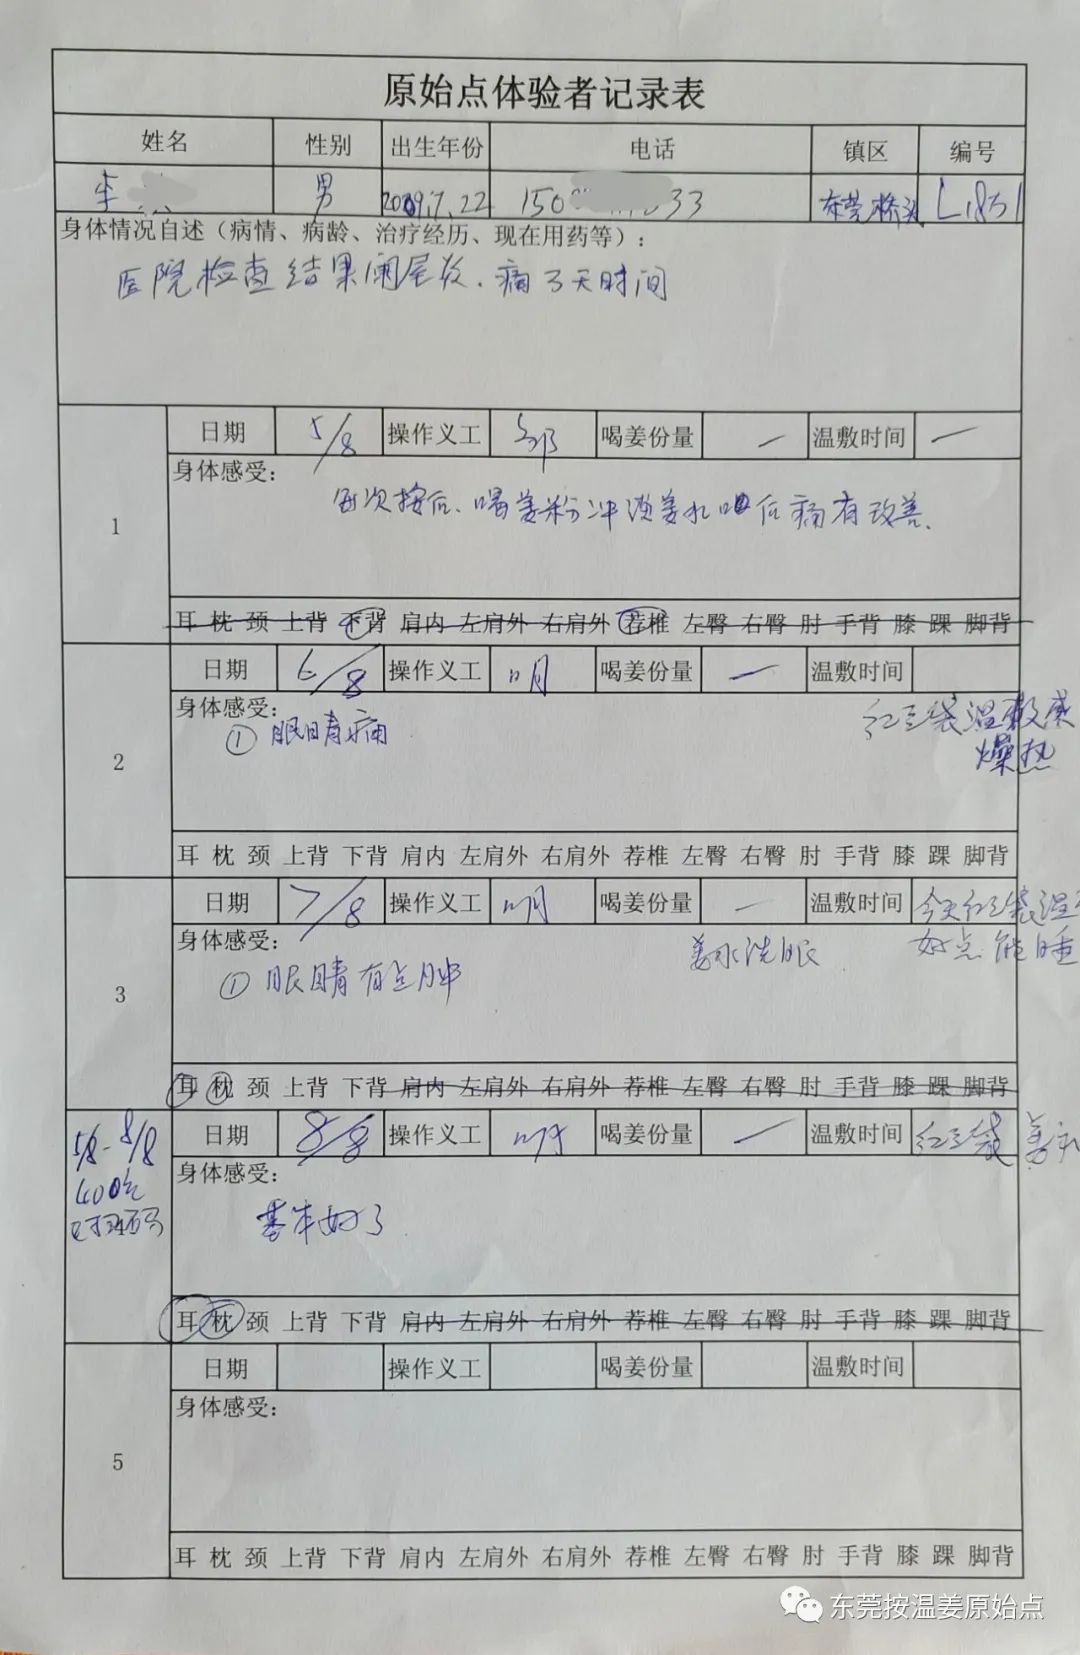 原始点体验者记录表
姓名 性别 出生年份 电话 镇区 编号
李 男 2009.7.22 150 33 东莞桥头 L1851
身体情况自述（病情、病龄、治疗经历、现在用药等）：
医院检查结果阑尾炎.痛了天时间
日期 5/8 操作义工 邹 喝姜份量 — 温敷时间 —
身体感受：
每次按后、喝姜粉冲淡姜水喝后痛有改善.
1
耳 枕 颈 上背 下背 肩内 左肩外 右肩外 荐椎 左臀 右臀 肘 手背 膝 踝 脚背
日期 6/8 操作义工 喝姜份量 — 温敷时间
身体感受：
① 眼睛痛
红豆袋温敷感
燥热
2
耳 枕 颈 上背 下背 肩内 左肩外 右肩外 荐椎 左臀 右臀 肘 手背 膝 踝 脚背
日期 7/8 操作义工 喝姜份量 — 温敷时间 今天红豆袋温
好点能睡
身体感受：
① 眼睛有点肿
姜水洗眼
3
耳 枕 颈 上背 下背 肩内 左肩外 右肩外 荐椎 左臀 右臀 肘 手背 膝 踝 脚背
5/8-8/8
400
日期 8/8 操作义工 喝姜份量 — 温敷时间 红豆袋 姜
身体感受：
基本好了
耳 枕 颈 上背 下背 肩内 左肩外 右肩外 荐椎 左臀 右臀 肘 手背 膝 踝 脚背
日期 操作义工 喝姜份量 温敷时间
身体感受：
5
耳 枕 颈 上背 下背 肩内 左肩外 右肩外 荐椎 左臀 右臀 肘 手背 膝 踝 脚背
东莞按温姜原始点